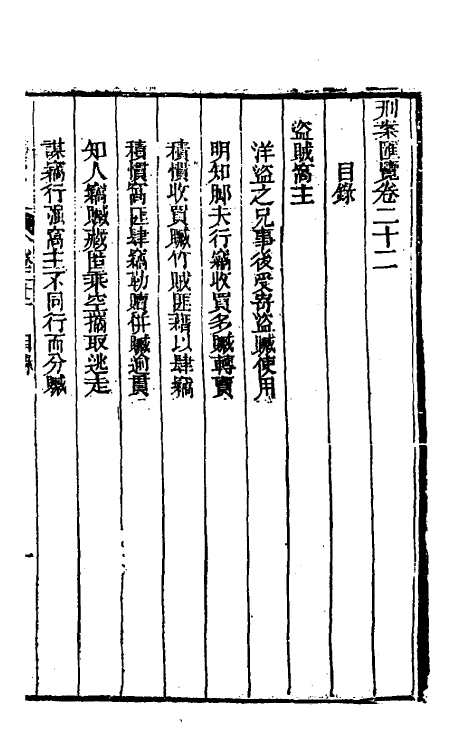 刑案匯覽卷二十二
目錄
盜賊窩主
洋盜之兄事後受寄盜贓使用
明知脚夫行竊收買多贓轉賣
積慣收買贓竹賊匪藉以肆竊
積慣窩匪肆竊勒贖併贓逾貫
知人竊贓藏匿乘空攜取逃走
謀竊行強窩主不同行而分贓